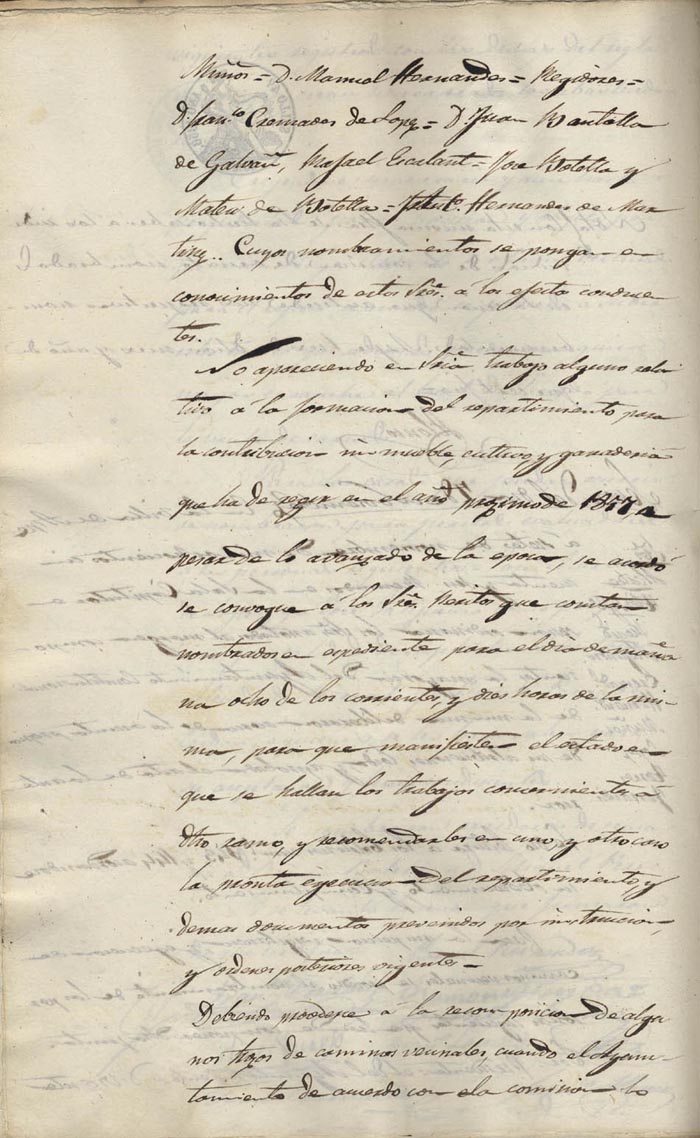 Muños = D. Manuel Hernandes = Regidores =
D. Fran.co Cremades de Lopez = D. Juan Bautella
de Galvañ, Rafael Escolant = Jose Botella y
Mateu de Botella = Hernandes de Mar
tinez.. Cuyos nombramientos se pongan en
conocimientos de estos Sres. á los efecto conducen
tes.
No apareciendo en Sria. trabajo alguno rela
tivo á la formacion del repartimiento para
la contribucion inmueble, cultivo, y ganaderia
que ha de regir en el año procsimo de 1857, a
pesar de lo avanzado de la epoca, se acordó
se convoque á los Sres. Peritos que constan
nombrados en espediente para el dia de maña
na ocho de los corrientes, y dies horas de la mis
ma, para que manifiesten el estado en
que se hallan los trabajos concernientes á
dho. ramo, y recomendarles en uno, y otro caso
la pronta egecucion del repartimiento, y
demas documentos prevenidos por instruccion,
y ordenes posteriores vigentes =
Debiendo procederse á la recomposicion de algu
nos trozos de caminos vecinales, cuando el Ayun
tamiento de acuerdo con la comision lo